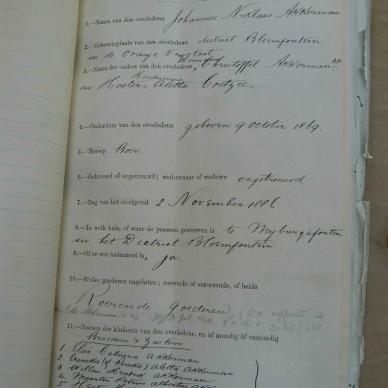 1.—Naam van den overledene Johannes Nicklaas Akkerman
2.—Geboorteplaats van den overledene district Bloemfontein
in de Oranje Vrystaat
3.—Namen der ouders van den overledene, Christoffel Akkerman
en Hester Aletta Coetzee
4.—Ouderdom van den overledene geboren 9 October 1869.
5.—Beroep Boer.
6.—Gehuwd of ongetrouwd; weduwnaar of weduwe ongetrouwd
7.—Dag van het sterfgeval 2 November 1886
8.—In welk huis, of waar de persoon gestorven is te Wyburgsfontein
in het District Bloemfontein
9.—Of er een testament is, ja
10.—Welke goederen nagelaten; roerende of onroerende, of beide
Roerende goederen
11.—Namen der kinderen van den overledene, en òf mondig òf onmondig
Broeders & Zusters
1 Elsie Catryna Akkerman
2 Aletta Akkerman
3 Willem Hendrik Akkerman
4
5